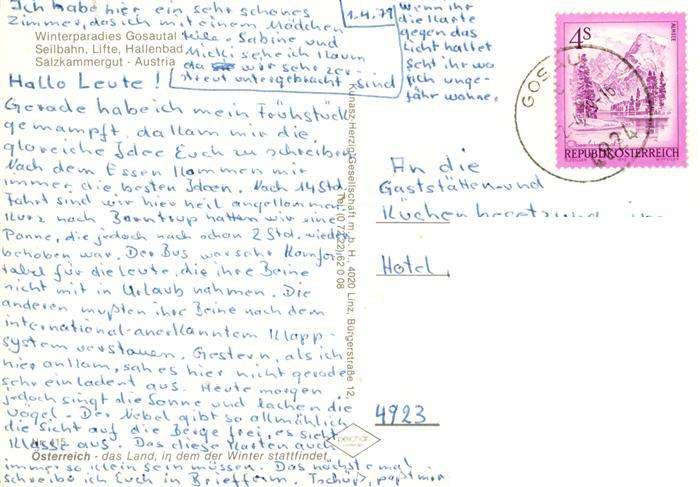 Ich habe hier ein sehr schönes
Zimmer, das ich mit einem Mädchen
teile. Sabine und
Micki sehe ich kaum
da wir sehr zer-
streut untergebracht sind
1.4.79
wenn ihr
die Karte
gegen das
Licht haltet
seht ihr wo
ich unge-
fähr wohne.
Winterparadies Gosautal
Seilbahn, Lifte, Hallenbad
Salzkammergut - Austria
Hallo Leute!
Gerade habe ich mein Frühstück
gemampft, da kam mir die
gloreiche Idee Euch zu schreiben
Nach dem Essen kommen mir
immer die besten Ideen. Nach 14 Std.
Fahrt sind wir hier heil angekommen.
Kurz nach Barntrup hatten wir eine
Panne, die jedoch nach schon 2 Std. wieder
behoben war. Der Bus war sehr komfor-
tabel für die Leute, die ihre Beine
nicht mit in Urlaub nahmen. Die
anderen mußten ihre Beine nach dem
international-anerkanntem Klapp-
system verstauen. Gestern, als ich
hier ankam, sah es hier nicht gerade
sehr einladent aus. Heute morgen
jedoch singt die Sonne und lachen die
Vögel. Der Nebel gibt so allmählich
die Sicht auf die Berge frei, es sieht
Klasse aus. Das diese Karten auch
immer so klein sein müssen. Das nächste mal
schreibe ich Euch in Briefform. Tschüß,
Nr. 415
Österreich - das Land, in dem der Winter stattfindet
Gesellschaft m. b. H., 4020 Linz, Bürgerstraße 12,
Tel. (0 72 22) 62 0 08
4S
REPUBLIK ÖSTERREICH
GOS
4824
An die
Gaststätten- und
Küchen
Hotel,
4923